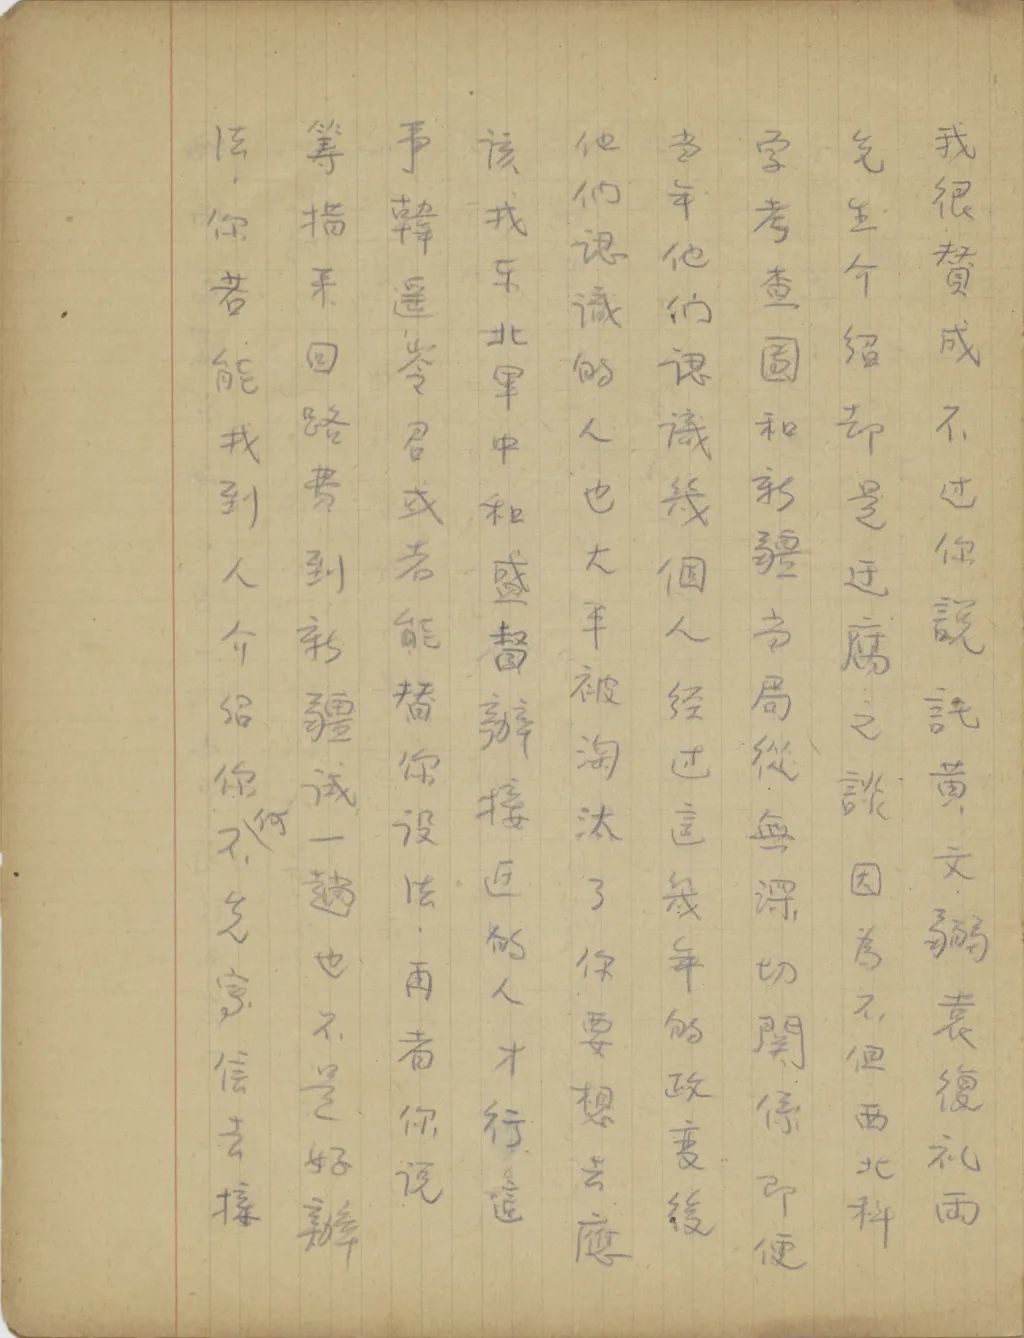 我很赞成 不过你說託黄文弼袁復礼兩
先生介紹却是迂腐之談 因為不但西北科
学考查團和新疆当局從無深切関係 即便
当年他们認識幾個人 经过這幾年的政变後
他们認識的人也大半被淘汰了 你要想去應
该找东北軍中和盛督辦接近的人才行 這
事韓遥岑君或者能替你设法．再者你说
筹措来回路費到新疆试一趟也不是好辦
法．你若能找到人介绍你何不先寫信去接